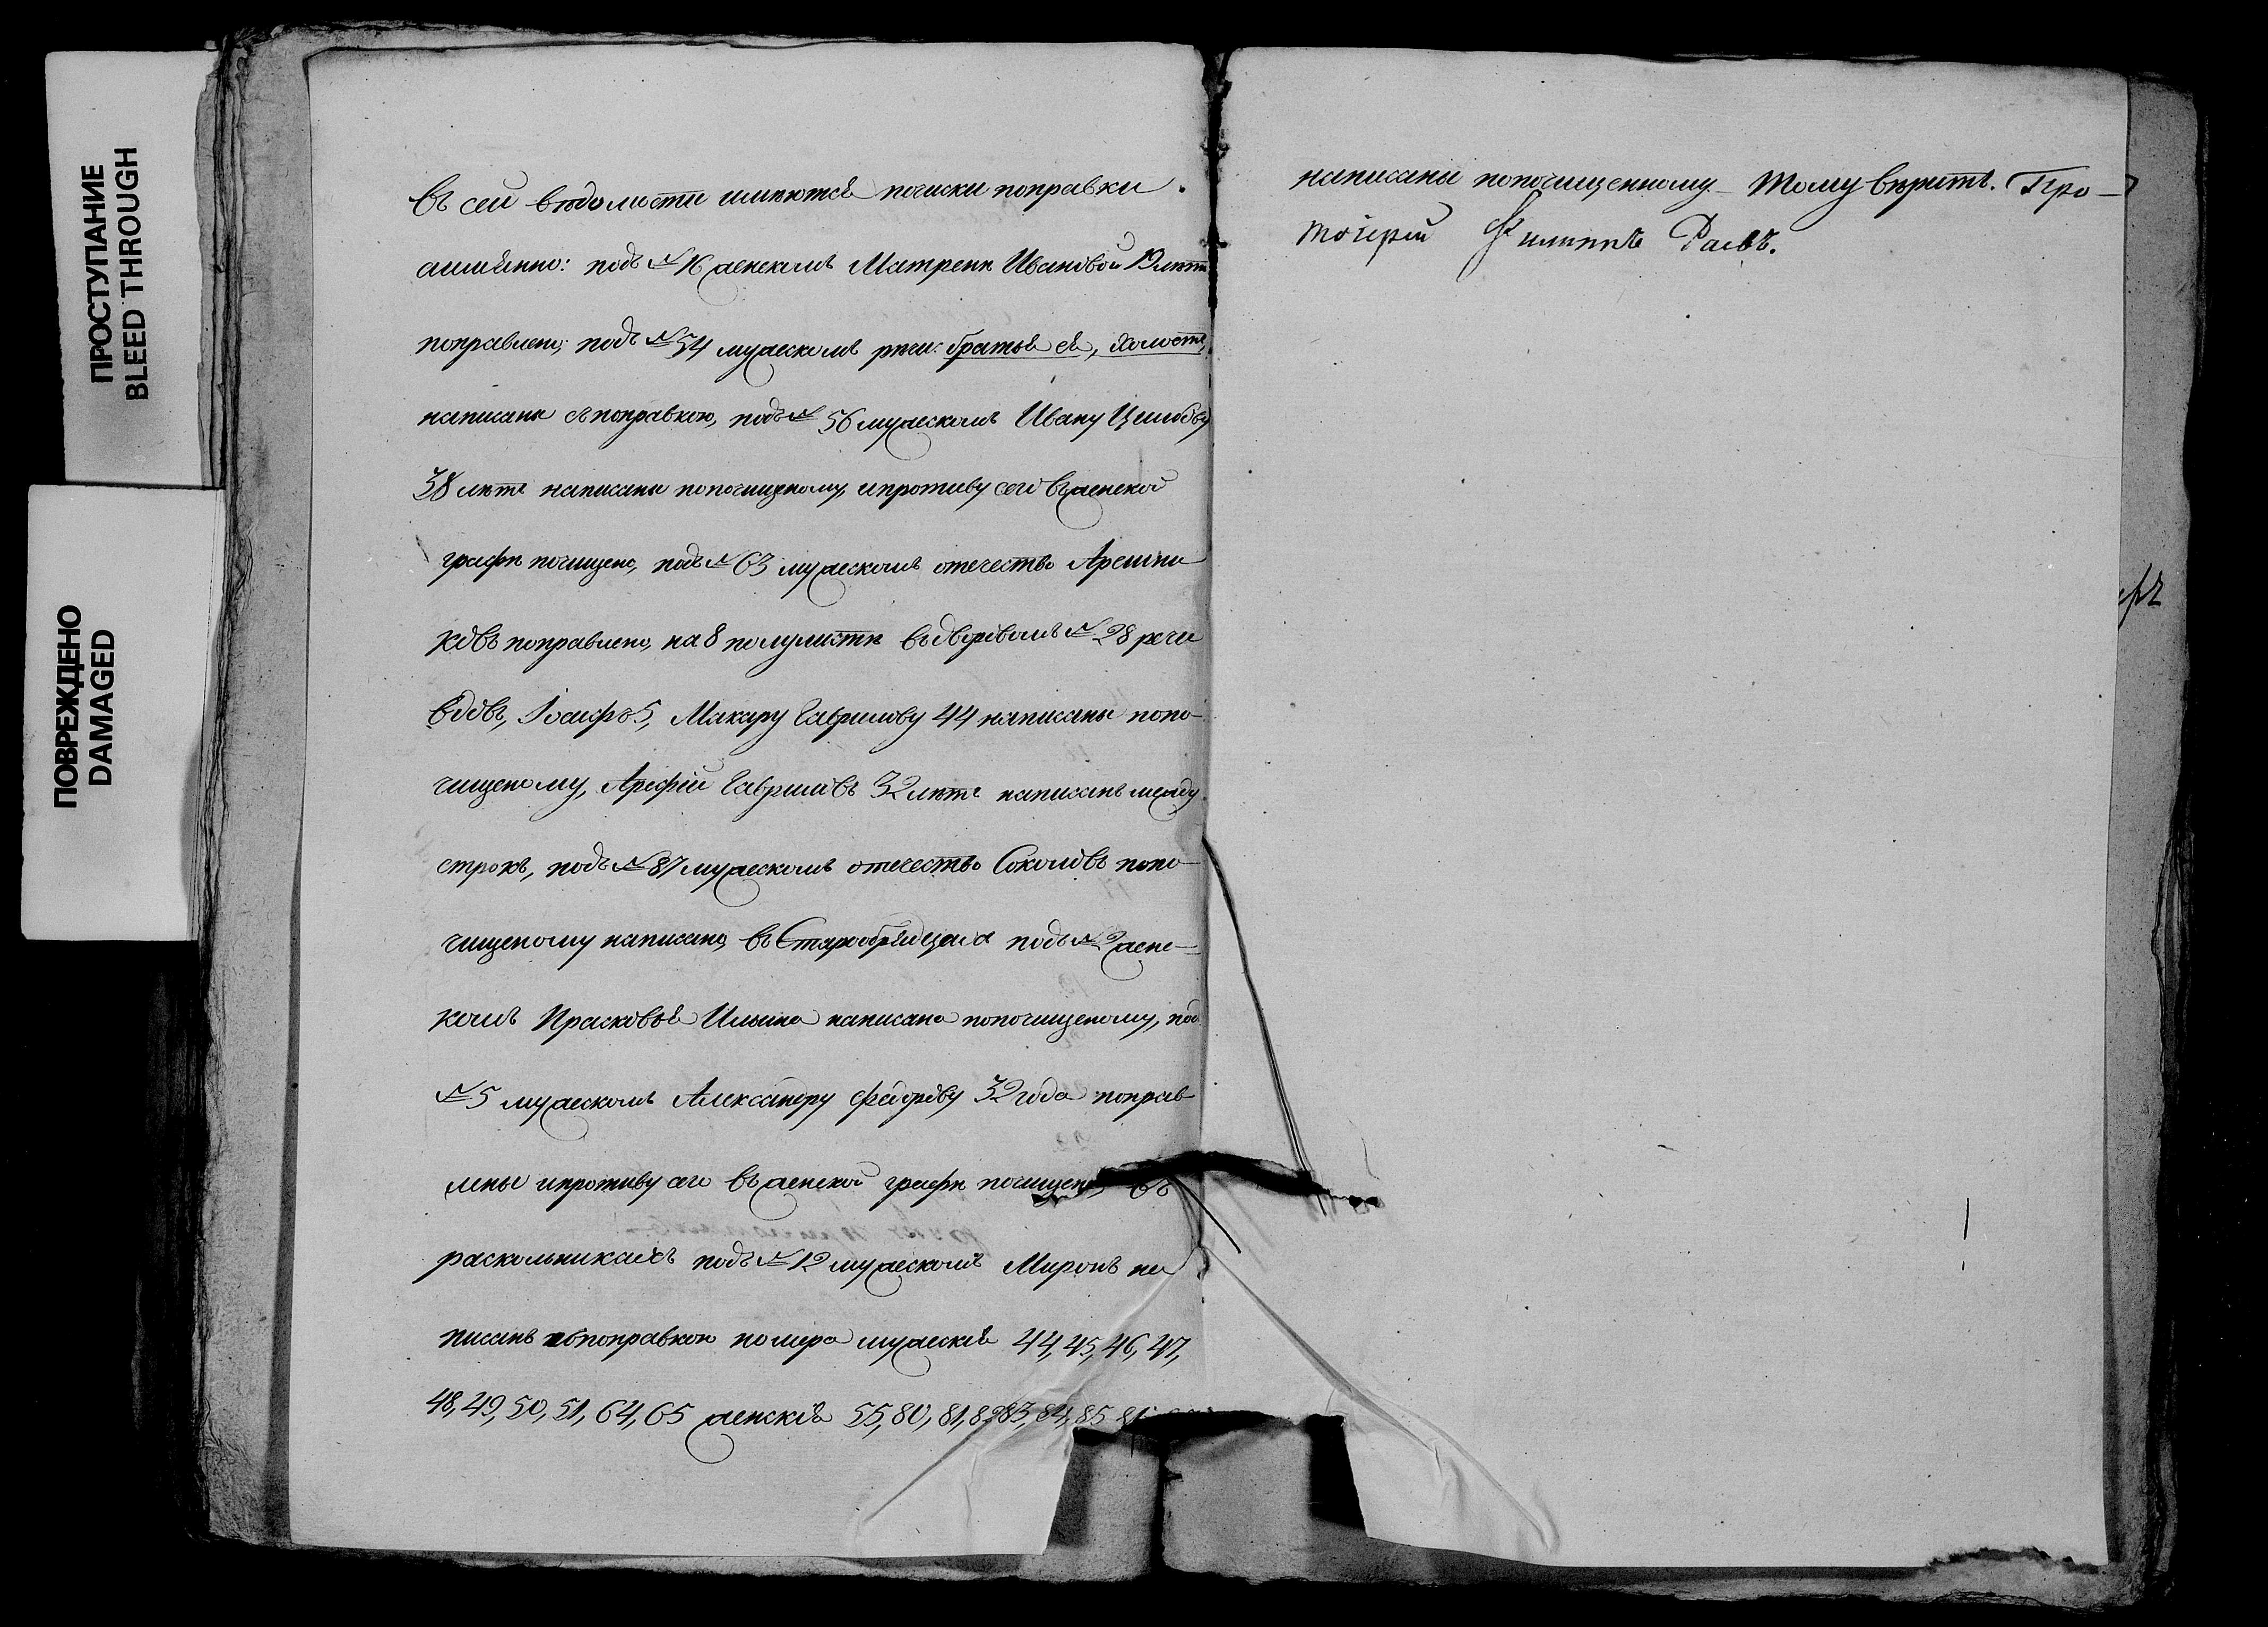 ПРОСТУПАНИЕ
BLEED THROUGH
ПОВРЕЖДЕНО
DAMAGED
въ сей вѣдомости имѣются почиски поправки
аимянно: подъ № 16 женскимъ Матренѣ Ивановой 19 лѣтъ
поправлено; подъ № 54 мужескомъ рѣчи: братья ея, холостъ,
написаны съ поправкою, подъ № 56 мужескомъ Ивану
38 лѣтъ написаны попочищеному, ипротиву сего въ женской
графѣ почищено, подъ № 63 мужескомъ отечество
ковъ поправлено, на 8 полулистѣ въ дворовомъ № 28 речи
вдовъ, Іосифъ 5, Макару Гаврилову 44 написаны попо-
чищеному, Арефій Гавриловъ 32 лѣтъ написанъ между
строкъ, подъ № 87 мужескомъ отечество Соколовъ попо-
чищеному написано, въ Старообрядцахъ подъ № 2 жен-
комъ Прасковья Ильина написана попочищеному, под
№ 5 мужескомъ Александру Федорову 32 года поправ-
лены ипротиву сего въ женской графѣ почищено въ
раскольникахъ подъ № 12 мужескомъ Миронъ на
писанъ споправкою номера мужескія 44, 45, 46, 47,
48, 49, 50, 51, 64, 65 женскія 55, 80, 81, 82 83, 84, 85
написаны попочищенному тому вѣрить. Про-
тоіерей Филиппъ Раевъ.